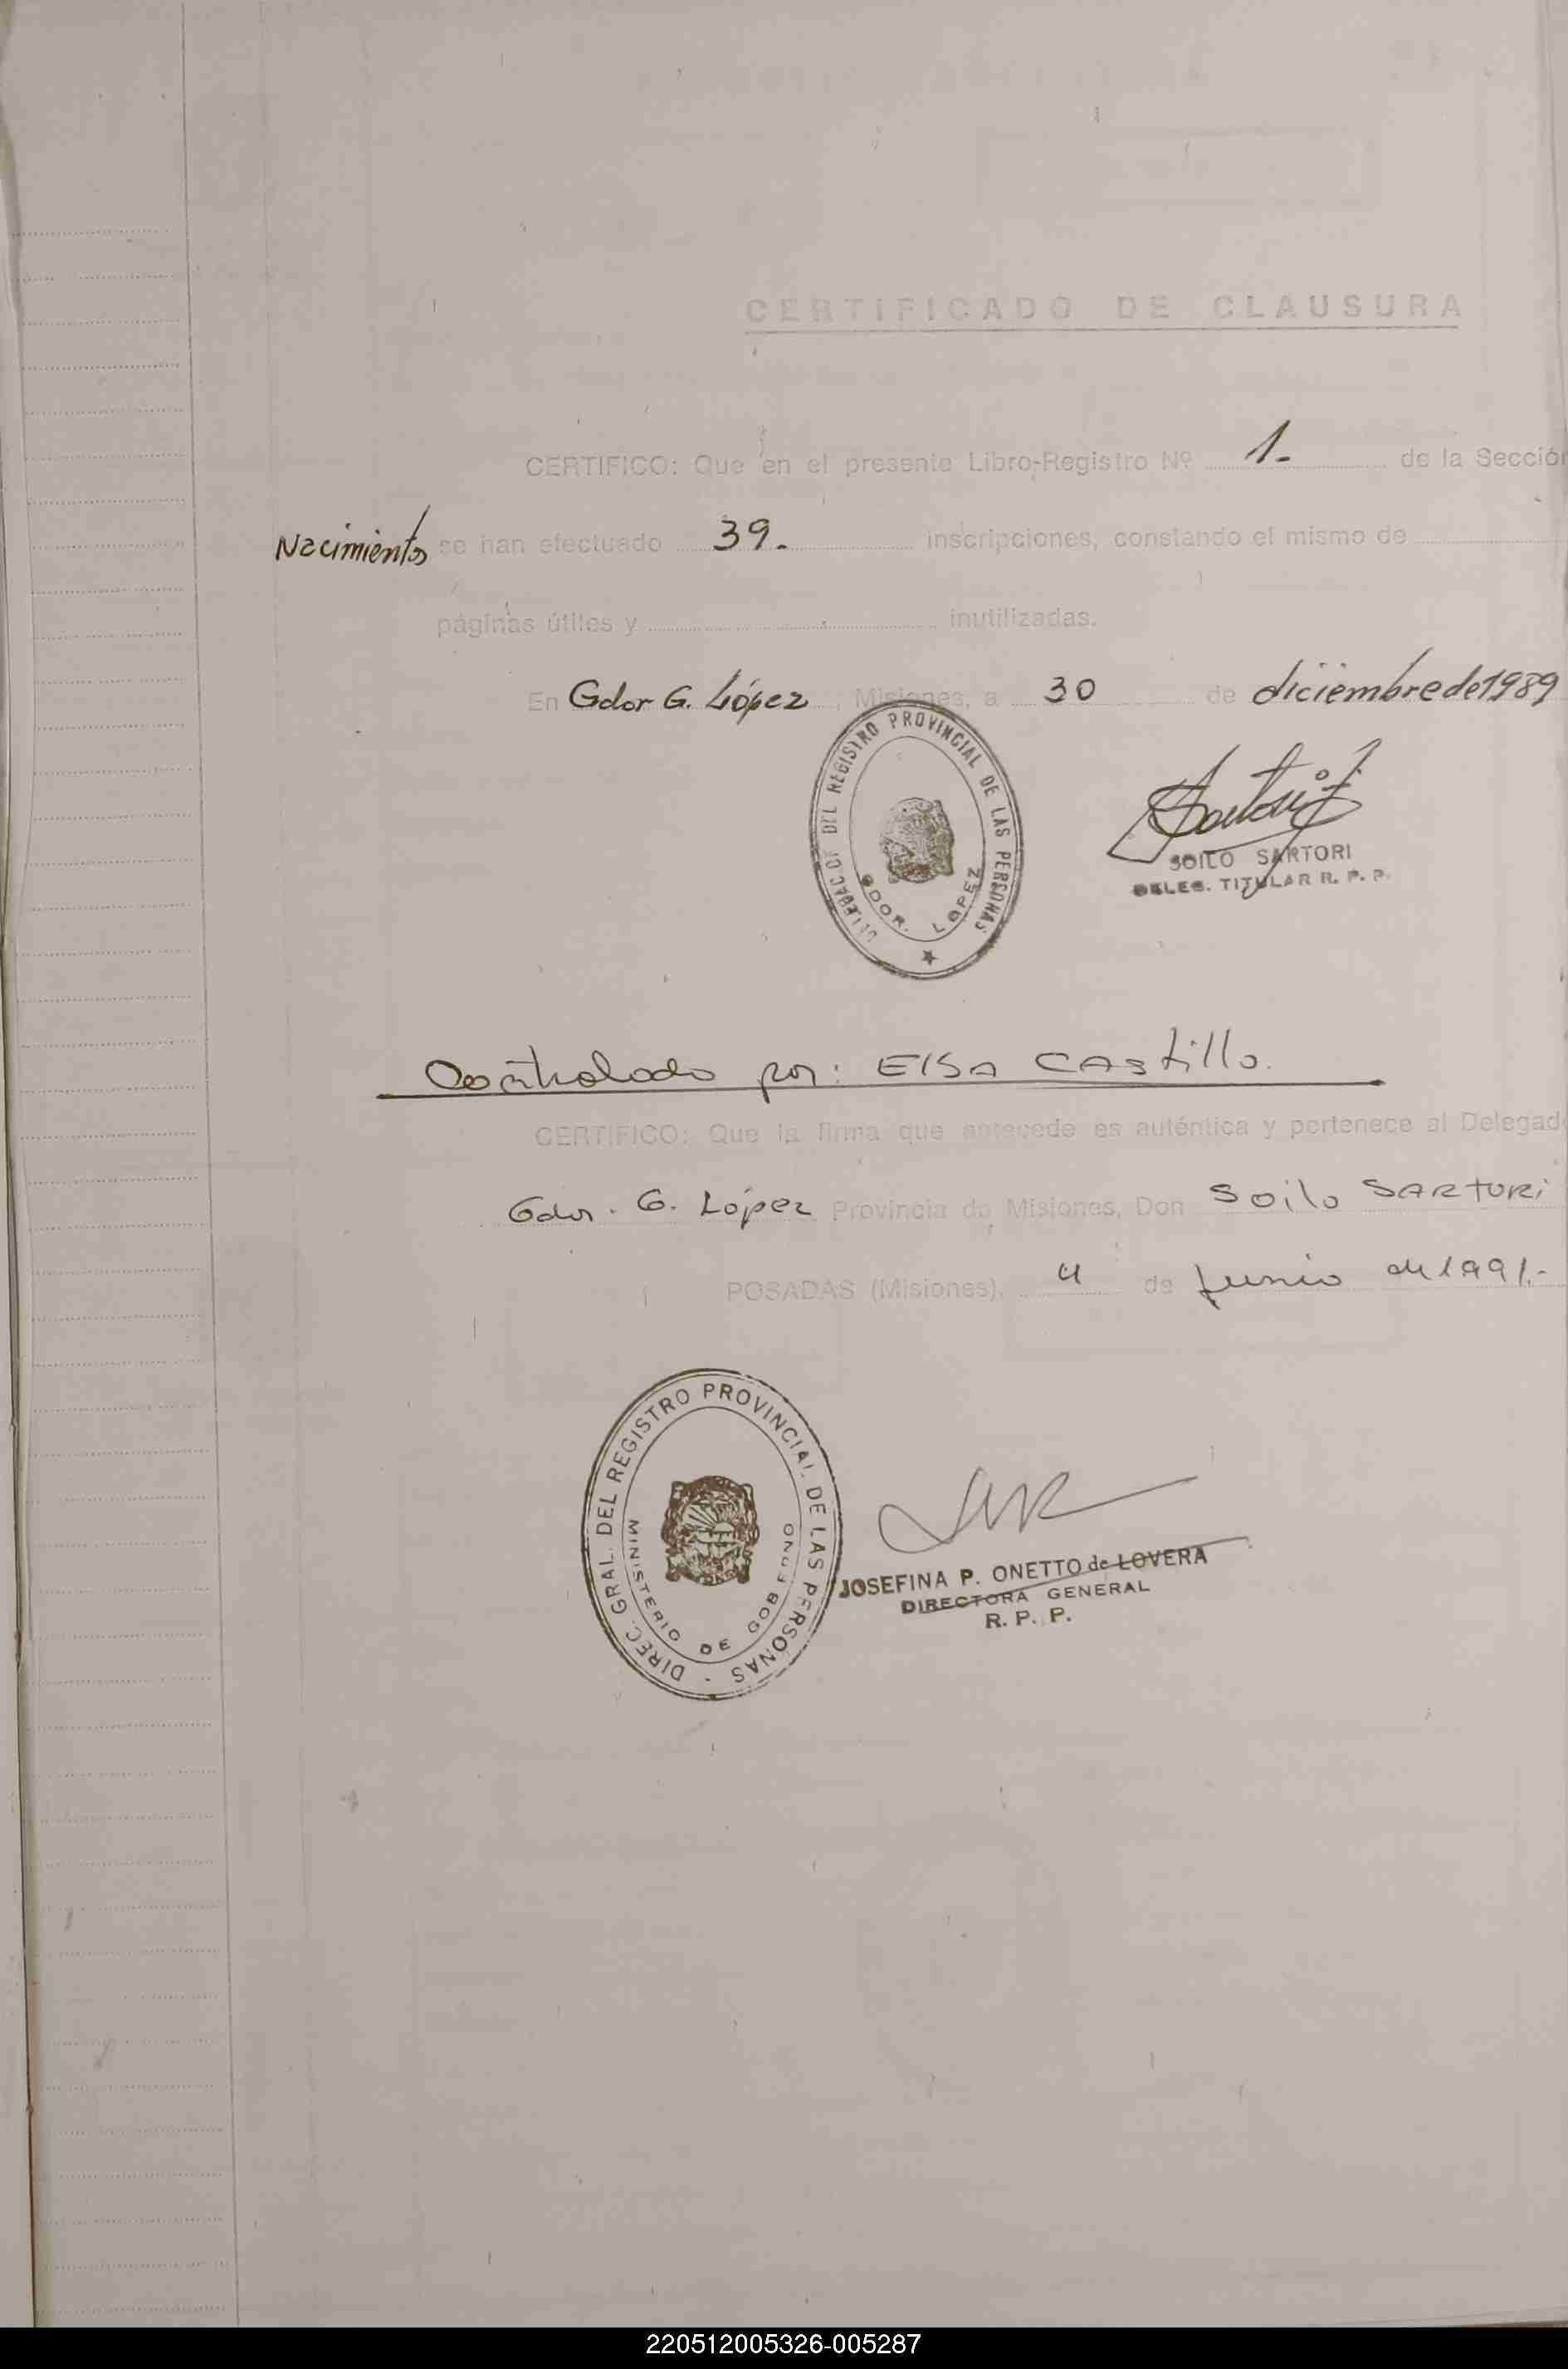 CERTIFICADO DE CLAUSURA
CERTIFICO: Que en el presente Libro-Registro Nº 1.- de la Sección
Nacimientos se han efectuado 39.- inscripciones, constando el mismo de
páginas útiles y inutilizadas.
En Gdor G. López, Misiones, a 30 de diciembre de 1989
DELEGACION DEL REGISTRO PROVINCIAL DE LAS PERSONAS
GDOR. LOPEZ
SOILO SARTORI
DELEG. TITULAR R. P. P.
Controlado por: Elsa Castillo.
CERTIFICO: Que la firma que antecede es auténtica y pertenece al Delegad
Gdor. G. López Provincia de Misiones, Don Soilo SARTORI
POSADAS (Misiones), 4 de Junio de 1991.-
DIREC. GRAL. DEL REGISTRO PROVINCIAL DE LAS PERSONAS -
MINISTERIO DE GOBIERNO
JOSEFINA P. ONETTO de LOVERA
DIRECTORA GENERAL
R. P. P.
220512005326-005287